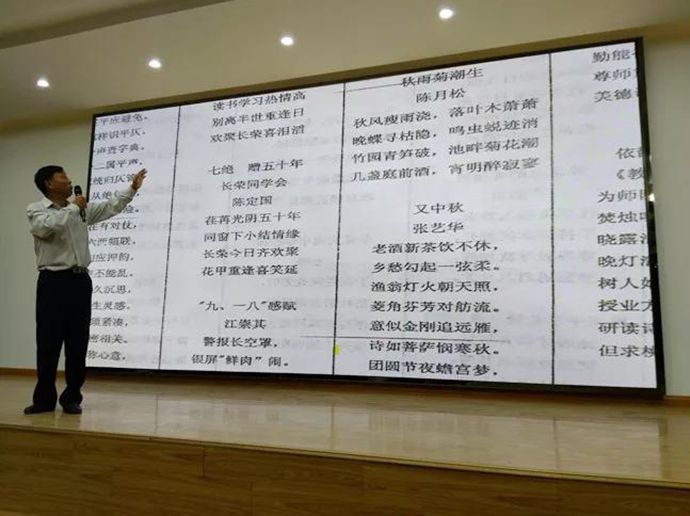 平应避免，
样识平仄，
声查字典，
国平声，
统归仄管
在有对仗，
相应押韵，
不能乱。
久沉思，
生灵感，
须紧凑，
密相关。
称心意，
读书学习热情高
别离半世重逢日
欢聚长荣喜泪滔
七绝 赠五十年
长荣同学会
陈定国
荏苒光阴五十年
同窗下小结情缘
长荣今日齐欢聚
花甲重逢喜笑延
“九、一八”感赋
江崇其
警报长空罩，
银屏“鲜肉”闹。
秋雨菊潮生
陈月松
秋风瘦雨浇，落叶木萧萧
晚蝶寻枯隐，鸣虫蜕迹消
竹园青笋破，池畔菊花潮
几盏庭前酒，宵明醉寂寥
又中秋
张艺华
老酒新茶饮不休，
乡愁勾起一弦柔。
渔翁灯火朝天照，
菱角芬芳对舫流。
意似金刚追远雁，
诗如菩萨悯寒秋。
团圆节夜蟾宫梦，
勤能
尊师
美德
依
《教
为师
焚烛
晓露
晚灯
树人
授业
研读
但求